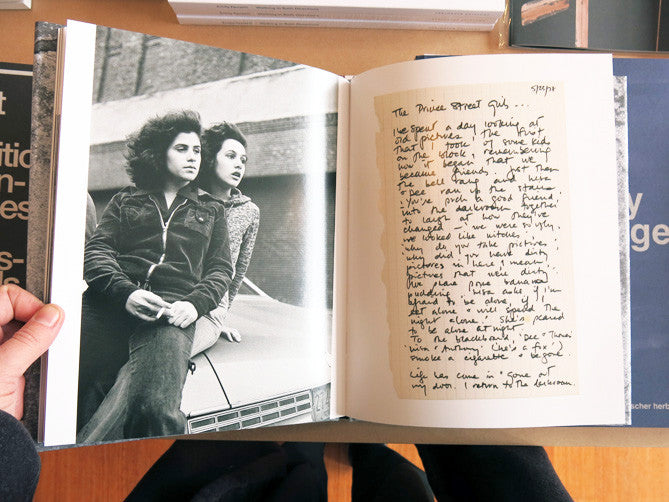 The Prince Street Girls...
I've spent a day looking at
old pictures, the first
that I took of some kids
on the block, remembering
how it began that we
became friends. Just then
the bell rang and Lisa
+ Dee ran up the stairs.
'You're such a good friend,'
into the darkroom together
to laugh at how they've
changed — 'we were so ugly.
We looked like witches.
Why do you take pictures,
why did you have dirty
pictures in here, I mean
pictures that were dirty.'
some banana
pudding. Lisa asks if I'm
afraid to be alone, if I
eat alone + will spend the
night alone. She's scared
to be alone at night.
To the blackboard, 'Dee +
'Lisa + Anthony' ('he's a fox')
smoke a cigarette + begone.
Life has come in + gone at
my door. I return to the darkroom.